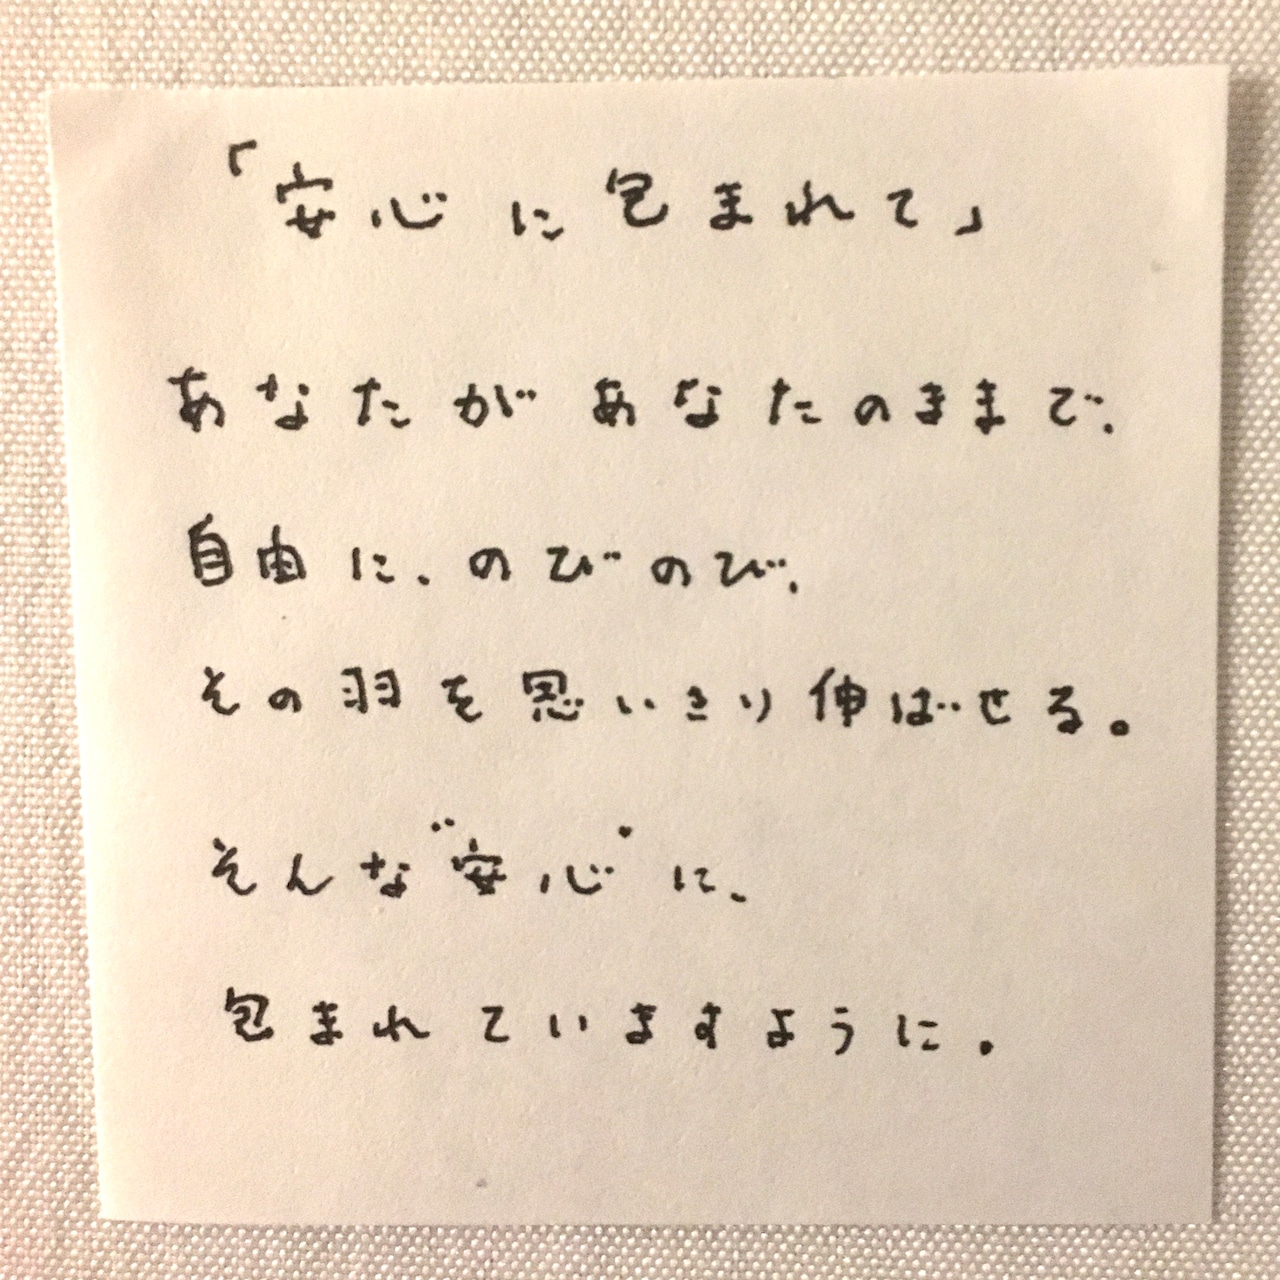 「安心に包まれて」
あなたがあなたのままで、
自由に、のびのび、
その羽を思いきり伸ばせる。
そんな"安心"に、
包まれていますように。